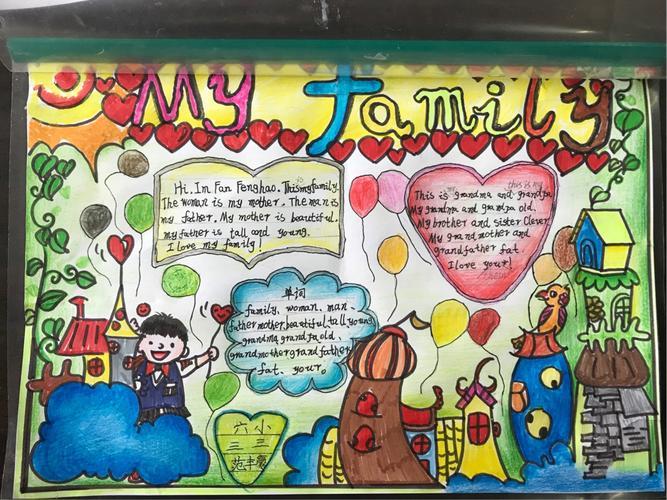 My family
Hi. Im Fan Fenghao. This is my family.
The woman is my mother. The man is
my father. My mother is beautiful.
my father is tall and young.
I love my family!
this is my
This is grandma and grandpa
My grandma and grandpa old.
My brother and sister clever.
My grandmother and
grandfather fat.
I love your!
单词
family, woman, man、
father mother, beautiful, tall young
grandma, grandpa, old、
grandmother grandfather
fat、your。
六小
三三
范丰